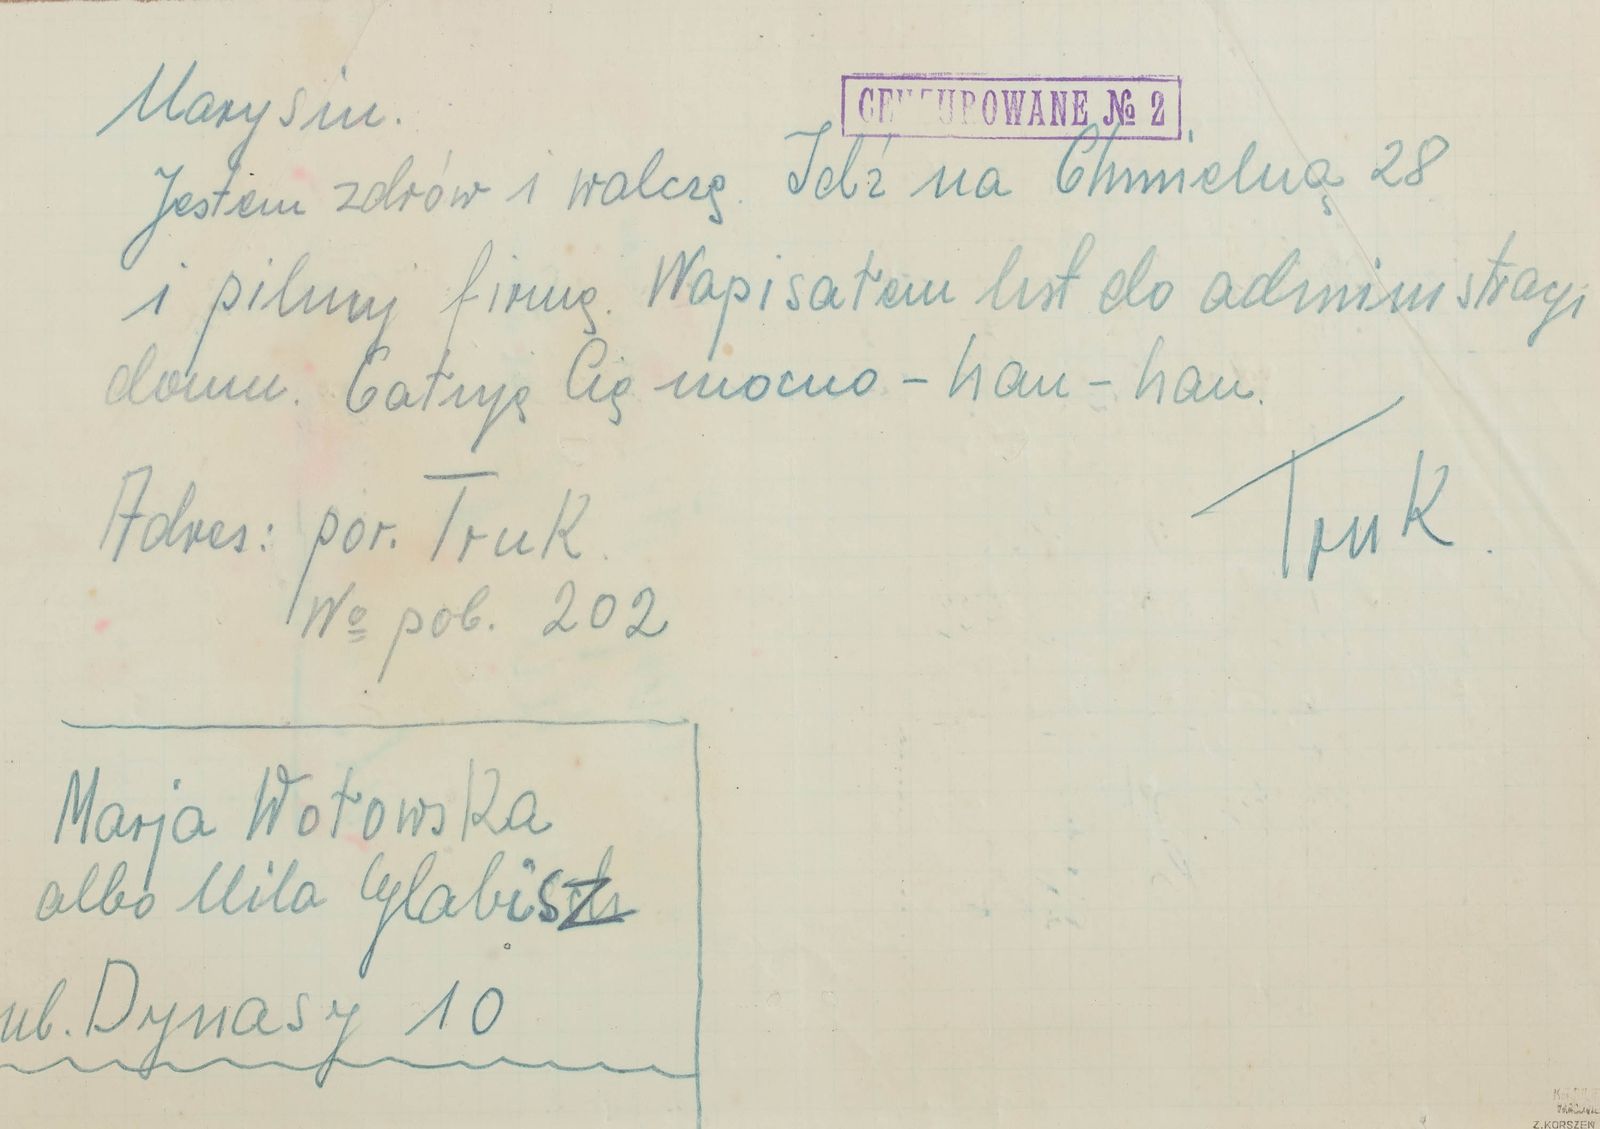 CENZUROWANE № 2
Marysiu.
Jestem zdrów i walczę. Idź na Chmielną 28
i pilnuj firmę. Napisałem list do administracji
domu. Całuję Cię mocno – hau – hau.
Truk.
Adres: por. Truk.
№ pob. 202
Marja Wołowska
albo Mila Glabisz
ul. Dynasy 10
Z. KORSZEŃ